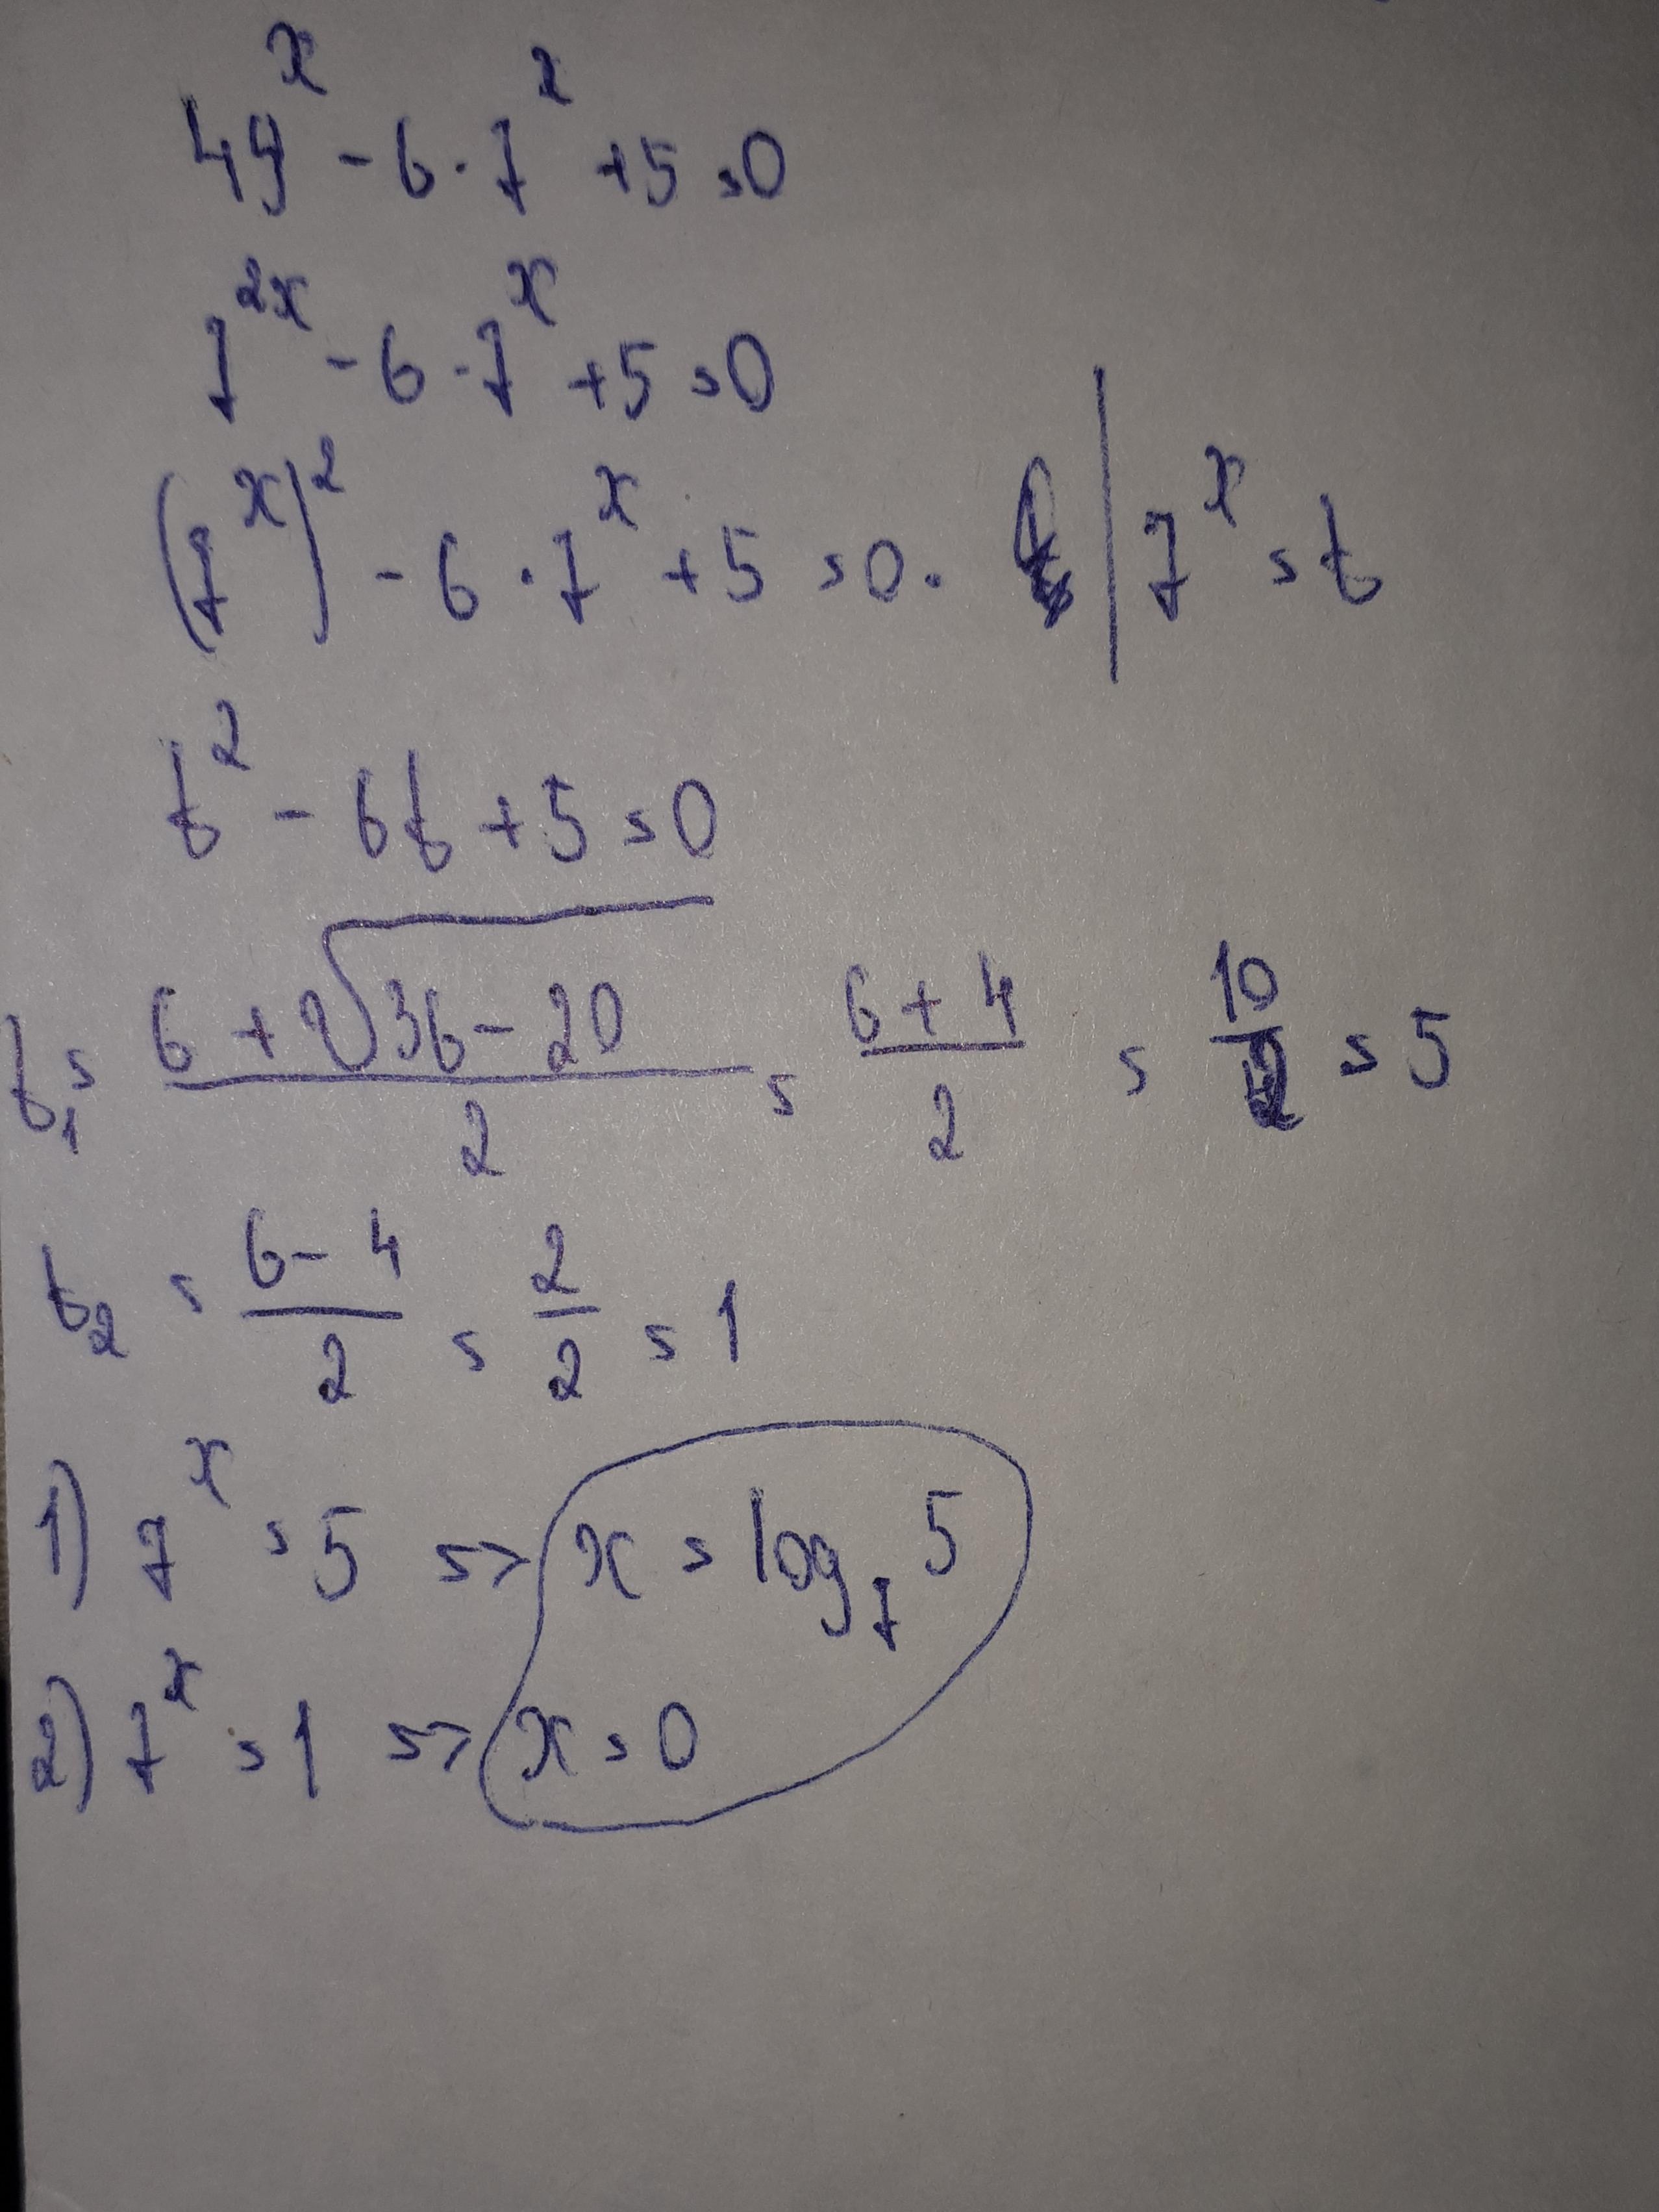 49ˣ - 6 · 7ˣ + 5 = 0
7²ˣ - 6 · 7ˣ + 5 = 0
(7ˣ)² - 6 · 7ˣ + 5 = 0. | 7ˣ = t
t² - 6t + 5 = 0
t₁ = (6 + ²√(36 - 20))/2 = (6 + 4)/2 = 10/2 = 5
t₂ = (6 - 4)/2 = 2/2 = 1
1) 7ˣ = 5 => x = log₇ 5
2) 7ˣ = 1 => x = 0